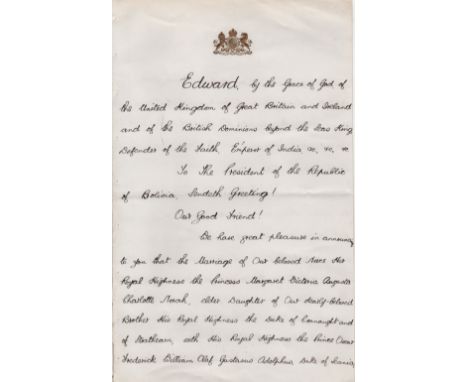 Edward, by the Grace of God, of
the United Kingdom of Great Britain and Ireland
and of the British Dominions beyond the Seas King
Defender of the Faith, Emperor of India &c, &c, &c
To The President of the Republic
of Bolivia, Sendeth Greeting!
Our Good Friend!
We have great pleasure in announcing
to you that the Marriage of Our beloved Niece Her
Royal Highness the Princess Margaret Victoria Augusta
Charlotte Norah, elder Daughter of Our dearly-beloved
Brother His Royal Highness the Duke of Connaught and
of Strathearn, with His Royal Highness the Prince Oscar
Frederick William Olaf Gustavus Adolphus, Duke of Scania,